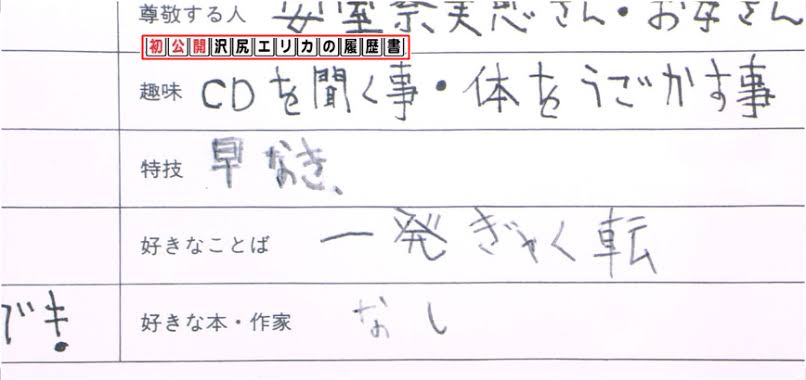 尊敬する人 安室奈美恵さん・お母さん
初公開沢尻エリカの履歴書
趣味 CDを聞く事・体をうごかす事
特技 早なき、
好きなことば 一発ぎゃく転
でも!
好きな本・作家 なし